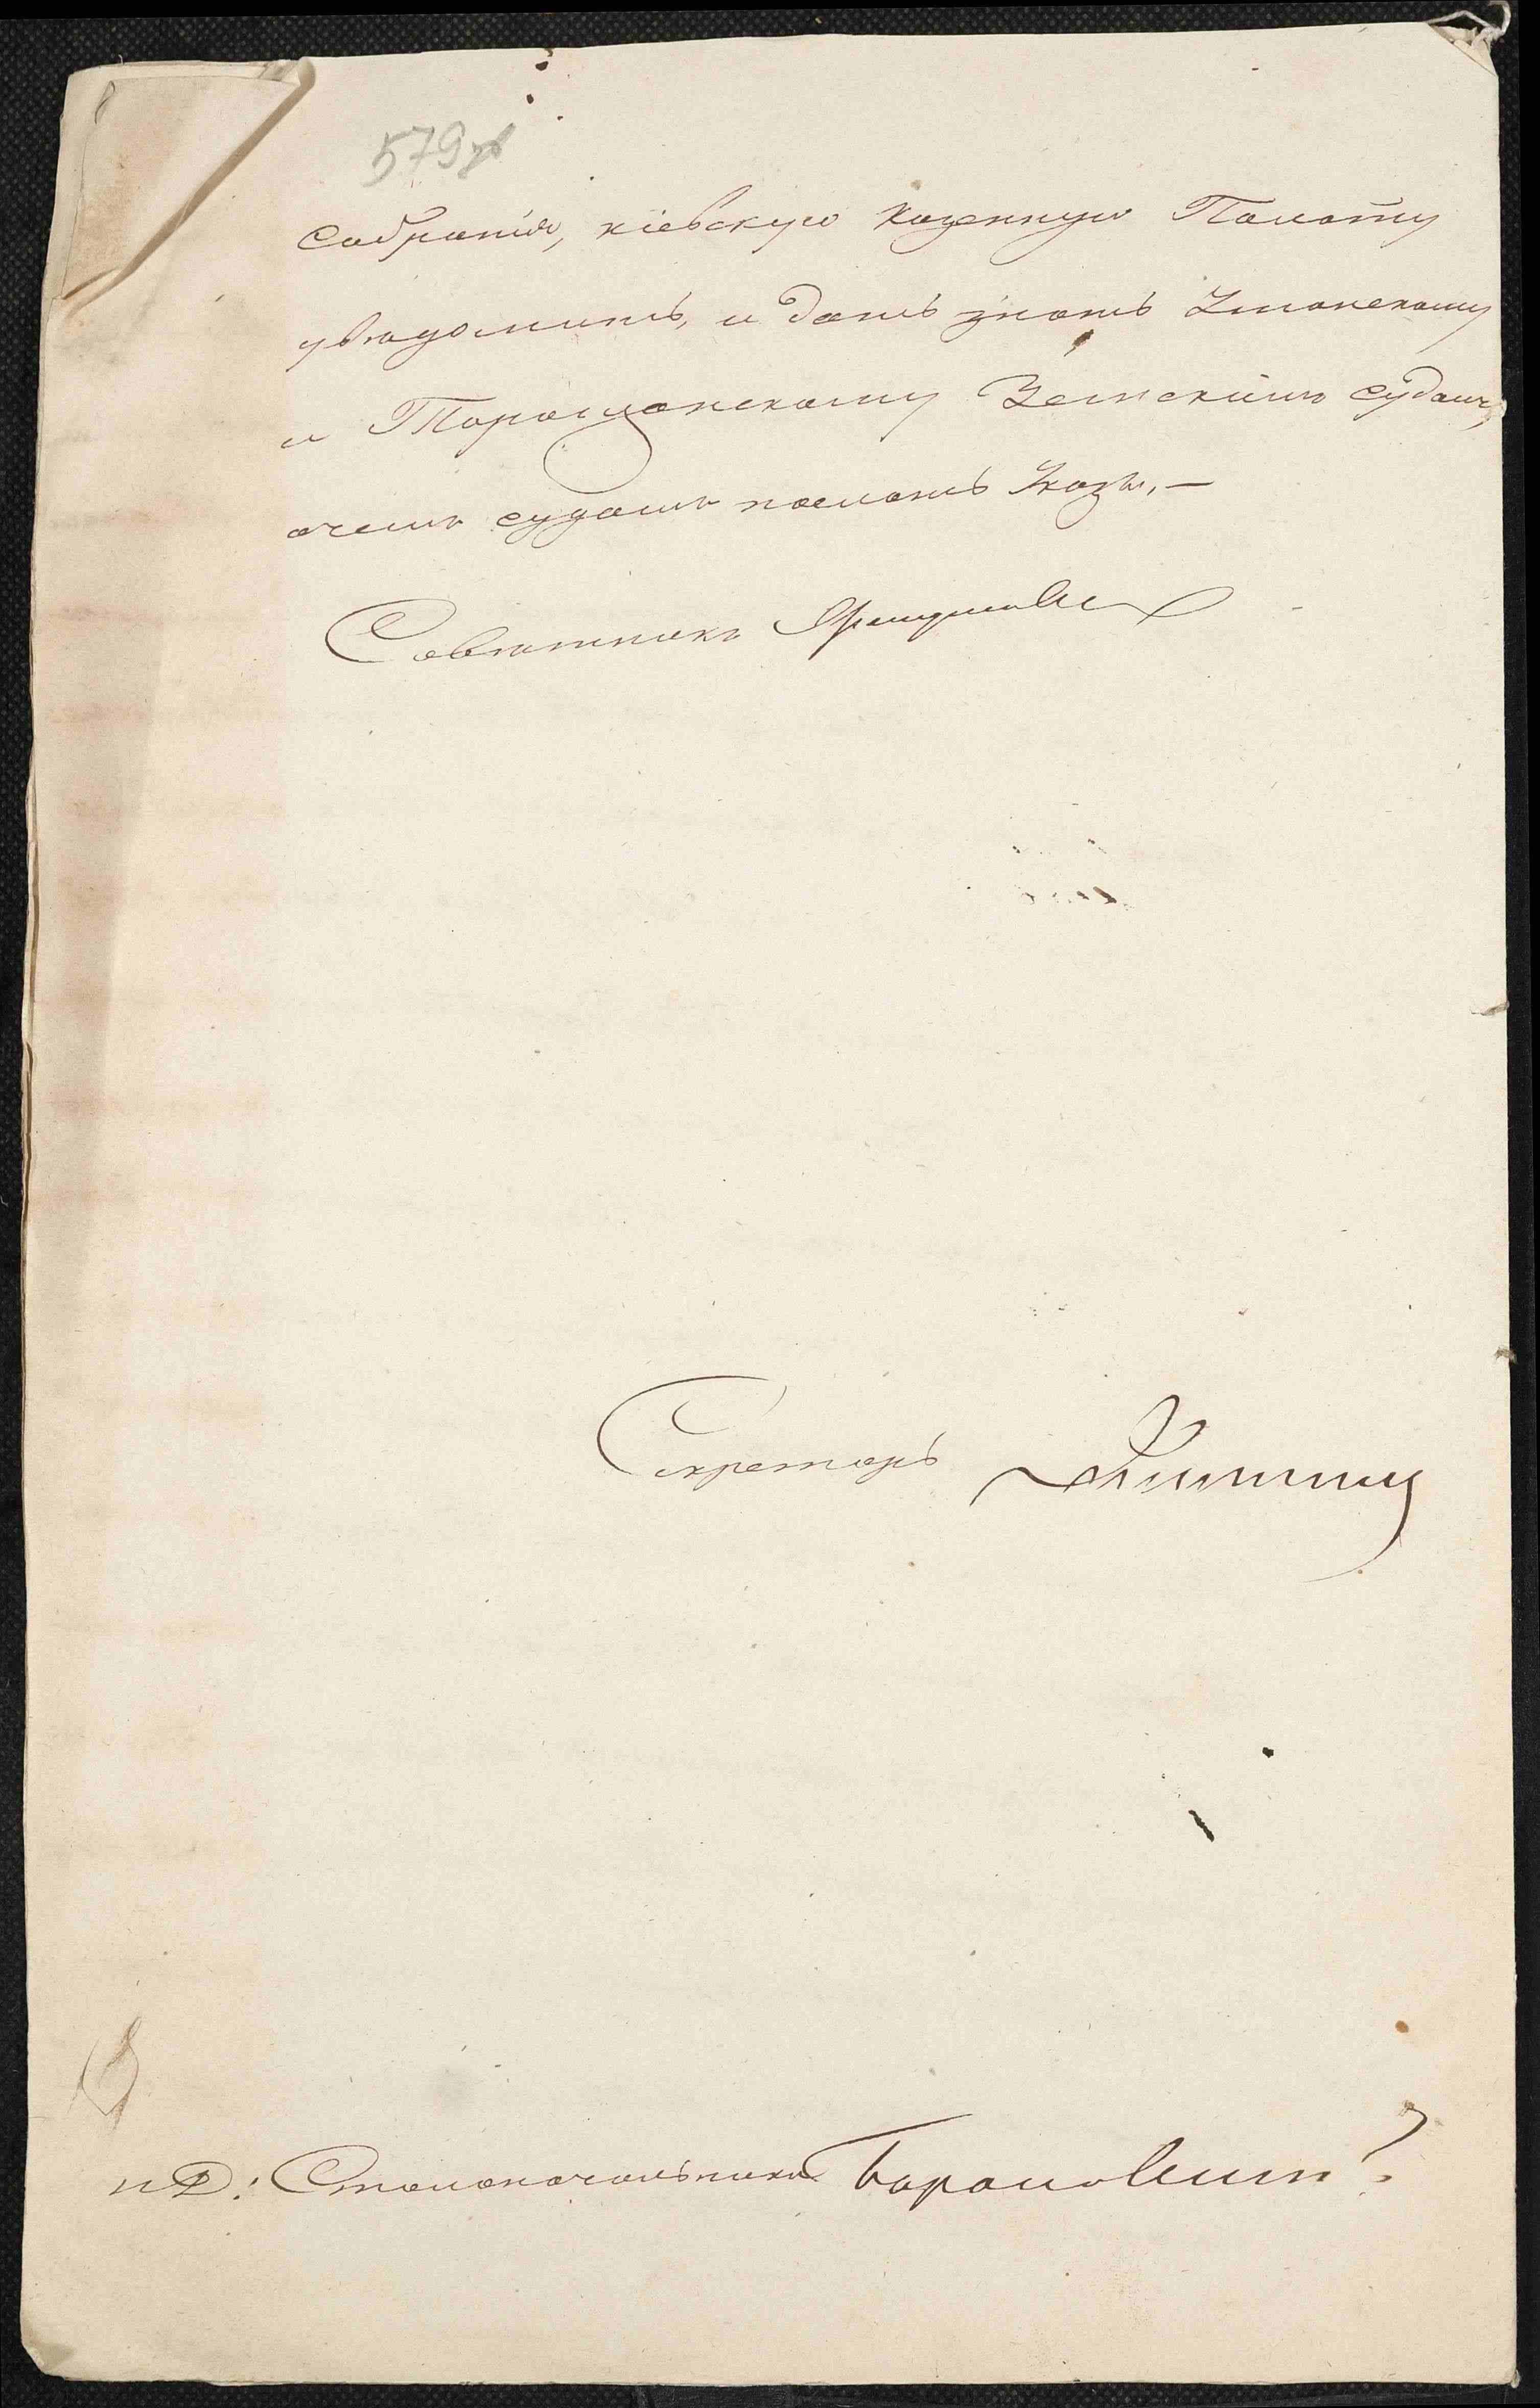 579
Собранія, кіевскую казенную Палату
увѣдомить, и дать знать Уманскому
и Таращанскому Земскимъ судамъ,
очемъ судамъ послать Указы.—
Совѣтникъ
Секретарь
пД: Столоначальника